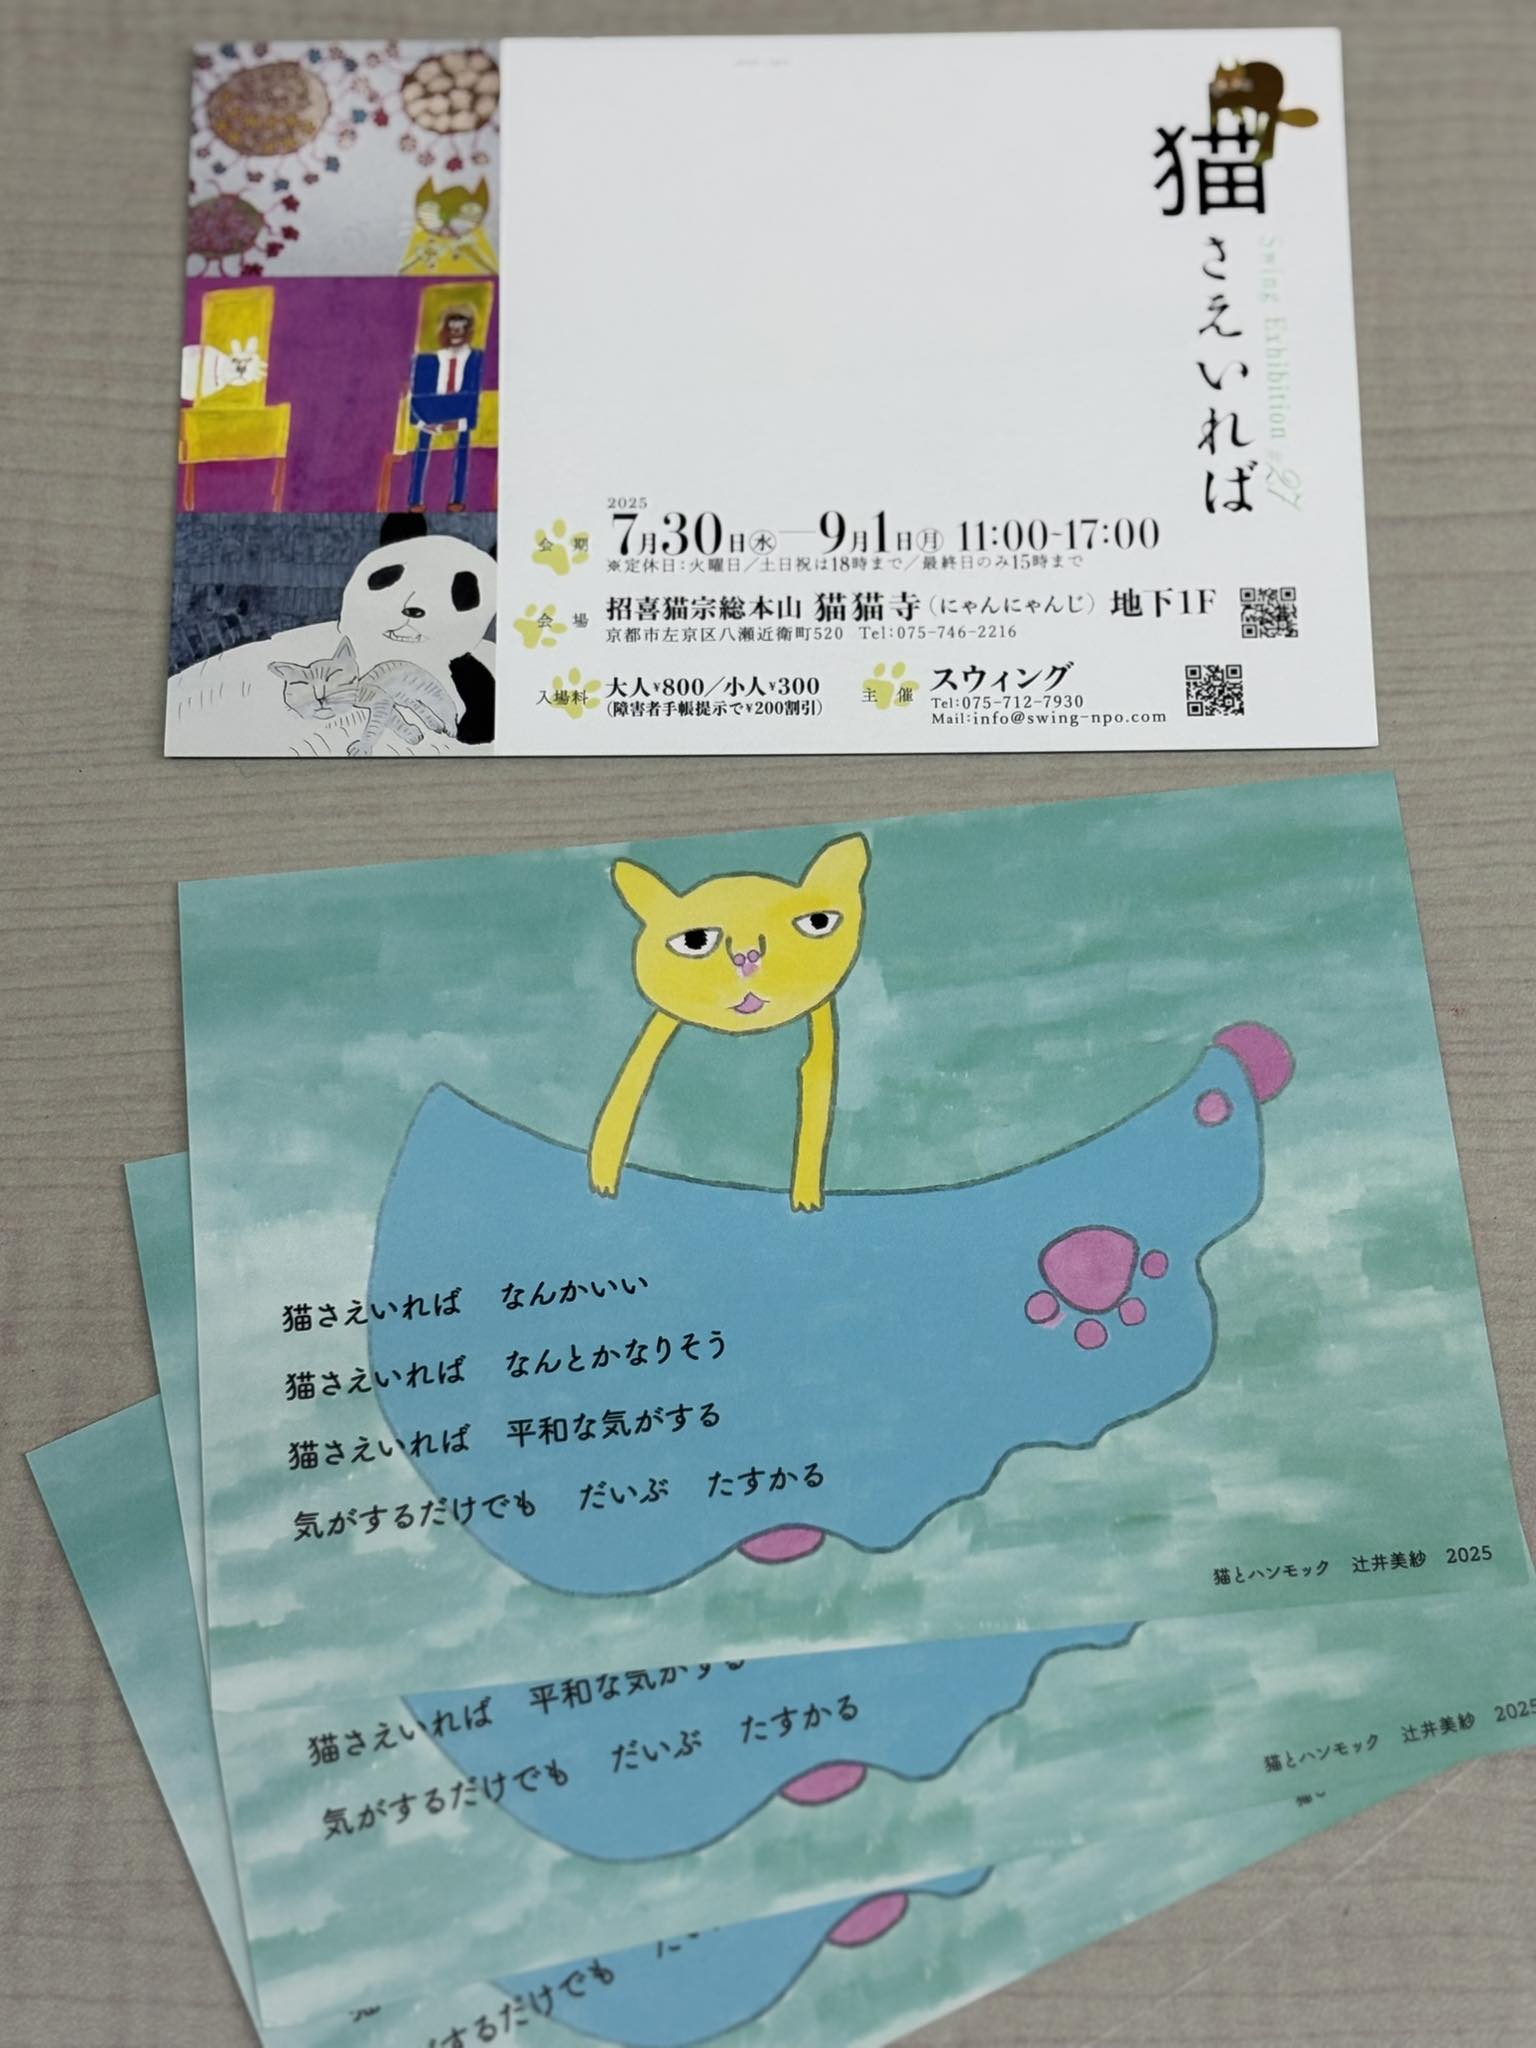 猫さえいれば
Swing Exhibition #27
2025
会期 7月30日㊌―9月1日㊊ 11:00-17:00
※定休日:火曜日／土日祝は18時まで／最終日のみ15時まで
会場 招喜猫宗総本山 猫猫寺(にゃんにゃんじ) 地下1F
京都市左京区八瀬近衛町520 Tel:075-746-2216
入場料 大人¥800／小人¥300
(障害者手帳提示で¥200割引)
主催 スウィング
Tel:075-712-7930
Mail:info@swing-npo.com
猫さえいれば なんかいい
猫さえいれば なんとかなりそう
猫さえいれば 平和な気がする
気がするだけでも だいぶ たすかる
猫とハンモック 辻井美紗 2025
猫さえいれば 平和な気がする
気がするだけでも だいぶ たすかる
猫とハンモック 辻井美紗 2025
がするだけでも だい